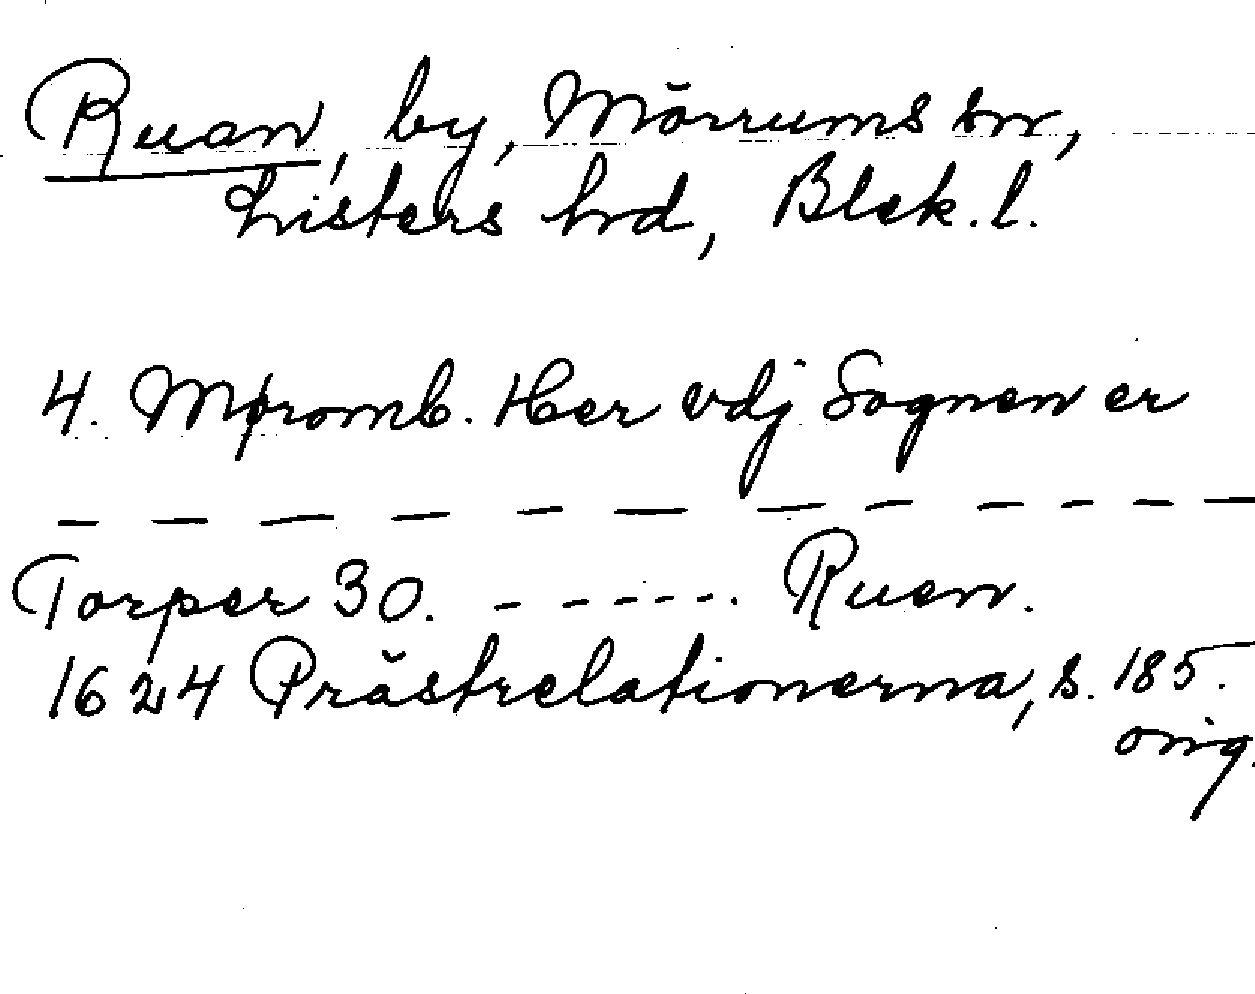 Ruan, by, Mörrums sn,
Listers hd, Blek. l.
4. Møromb. Her vdj Sognen er
— — — — — — — — — — — —
Torper 30. - - - - - -. Ruen.
1624 Prästrelationerna, s. 185.
orig.